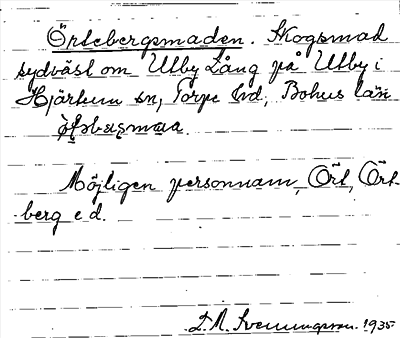 Örtebergsmaden. Skogsmad
sydväst om Utby Lång på Utby i
Hjärtum sn, Torpe hd, Bohus län
Möjligen personnam, Ört, Ört-
berg e d.
S. M. Svenungsson. 1935